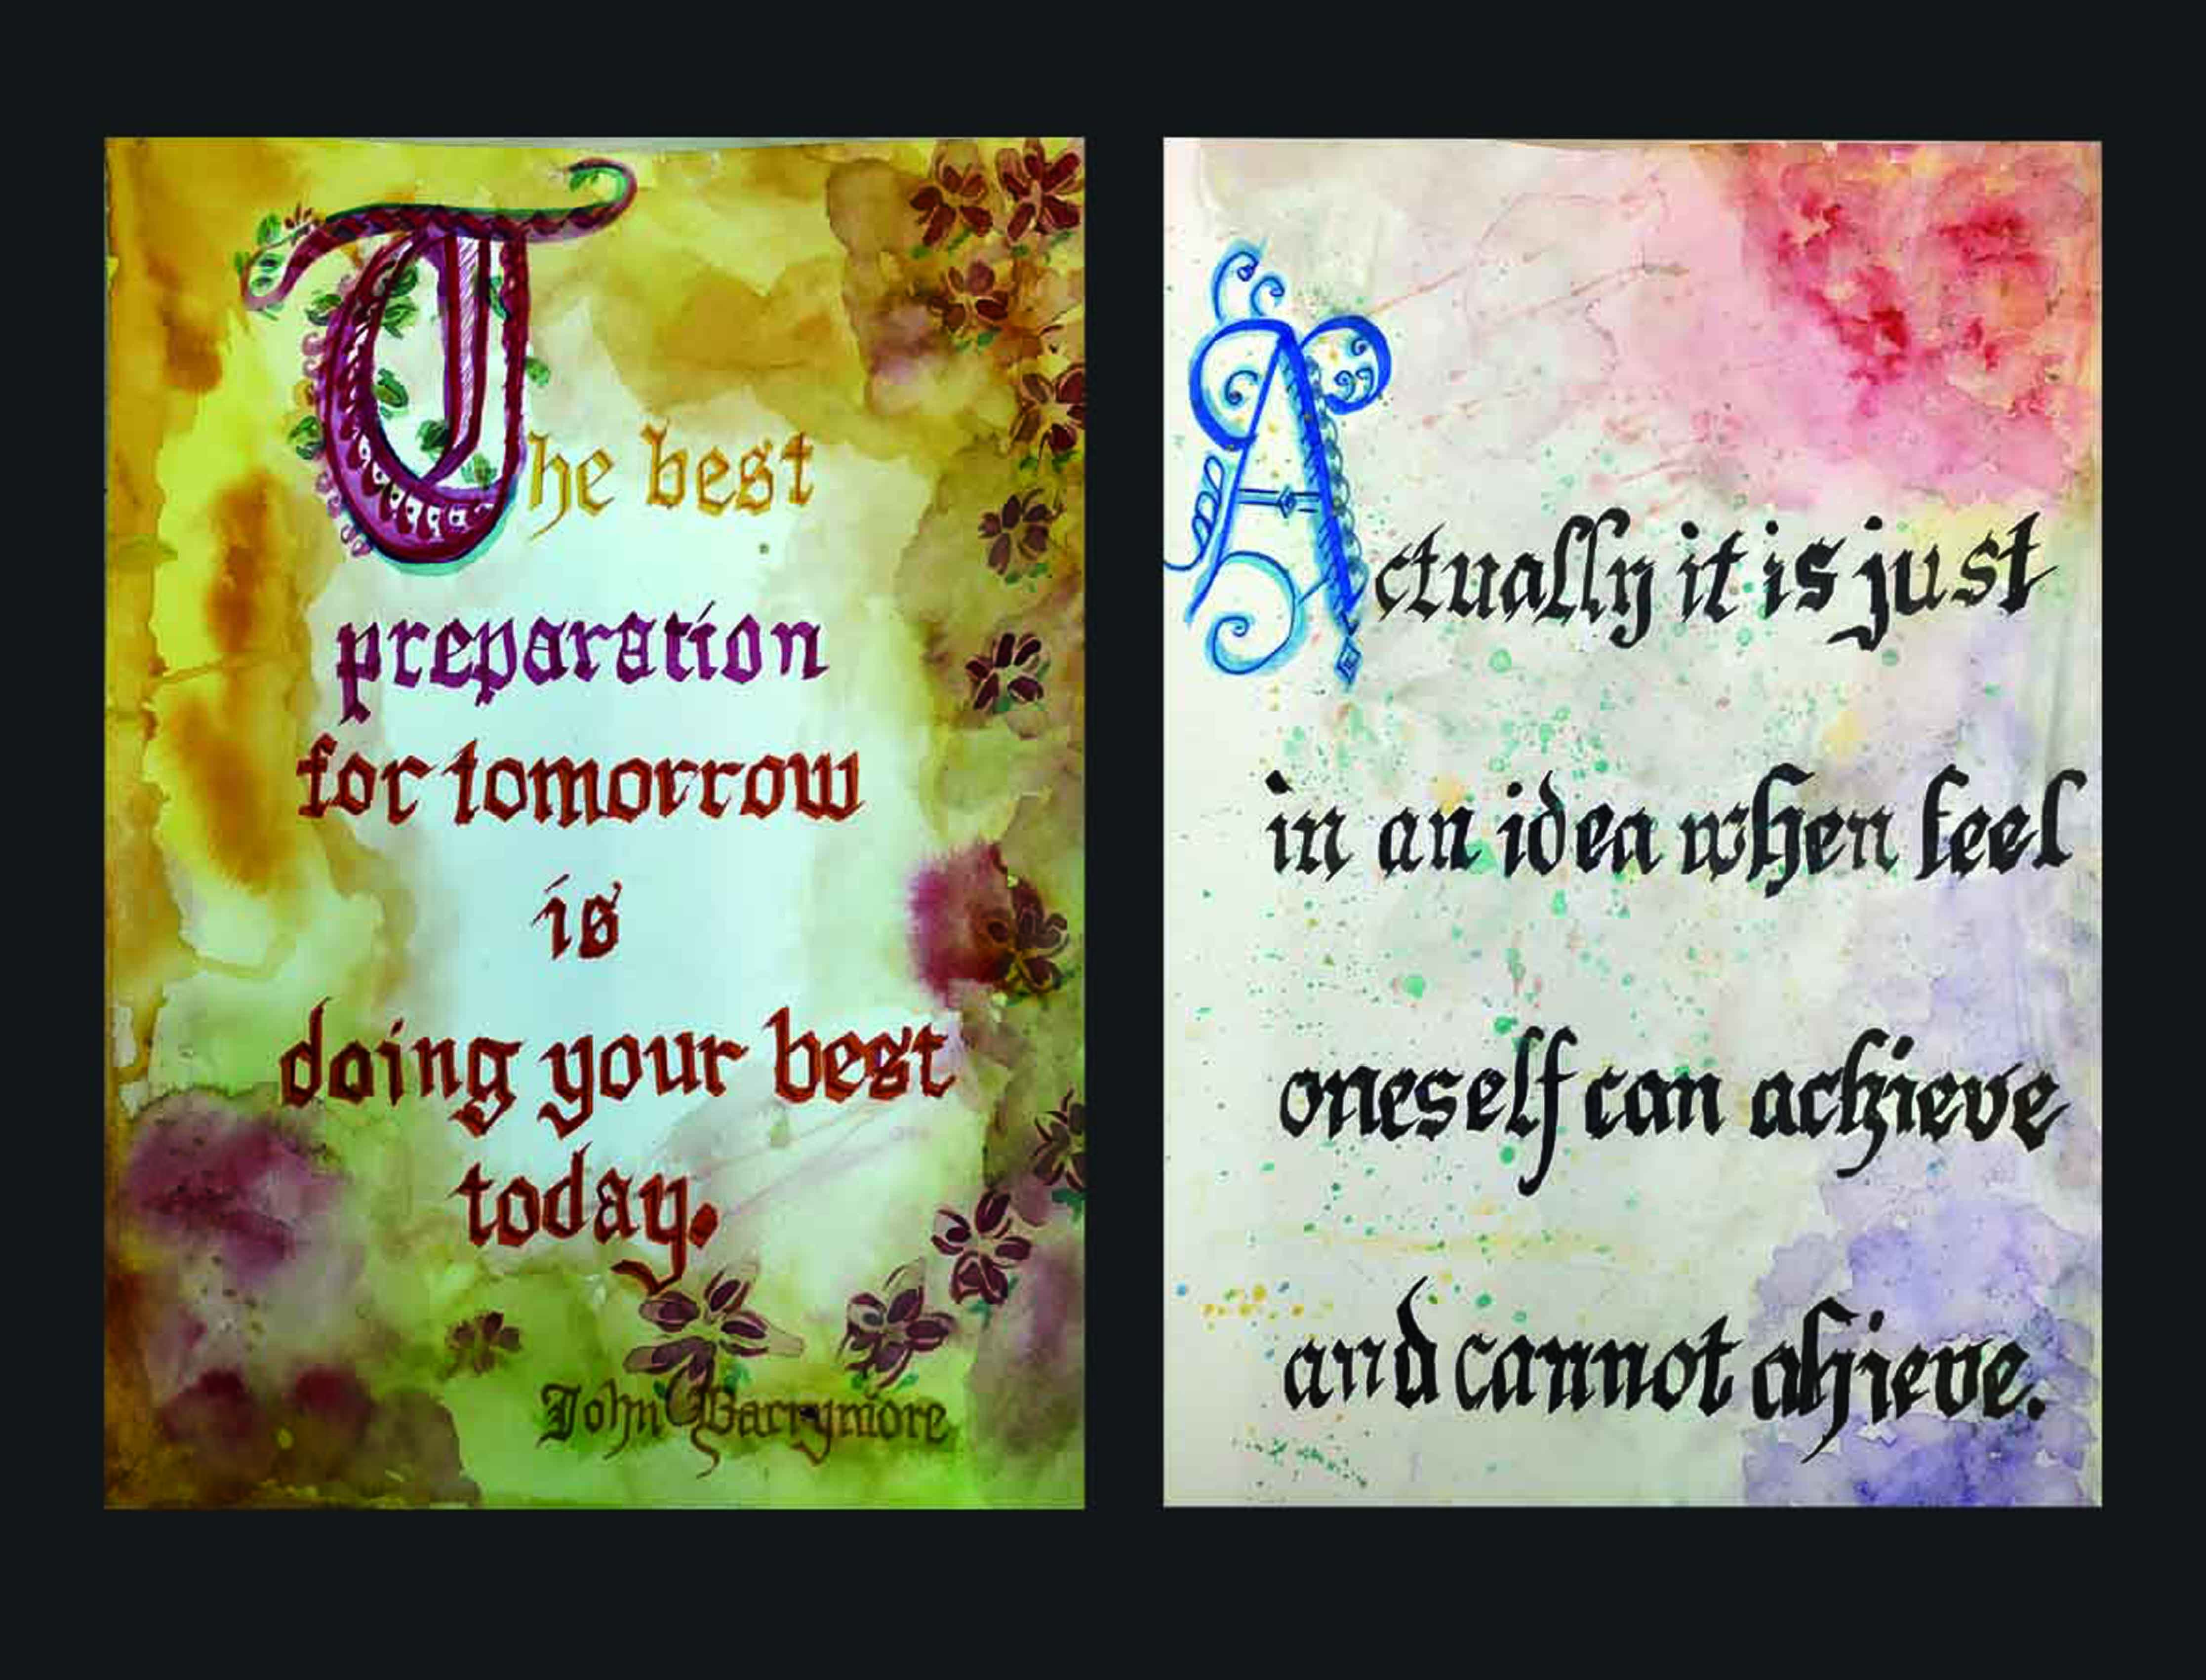 The best
preparation
for tomorrow
is
doing your best
today.
John Barrymore
Actually it is just
in an idea when feel
oneself can achieve
and cannot ahieve.